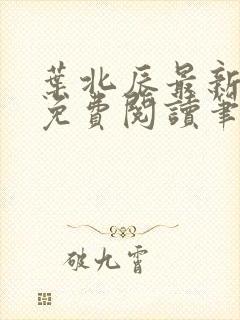 葉北辰最新
免費閱讀筆
破九霄